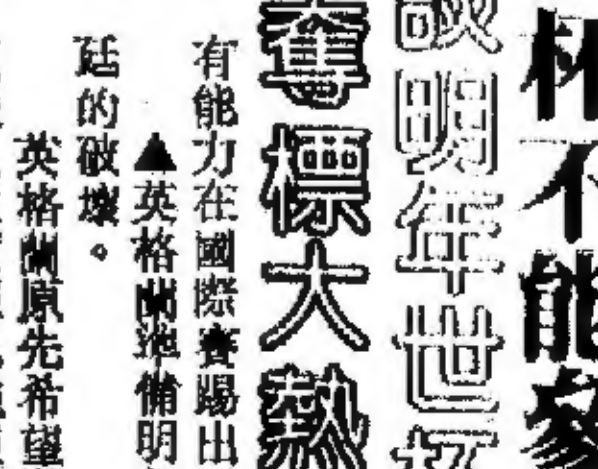 杯不能參
明年世
奪標大熱
有能力在國際賽踢出
▲英格蘭準備明
廷的破壞。
英格蘭原先希望